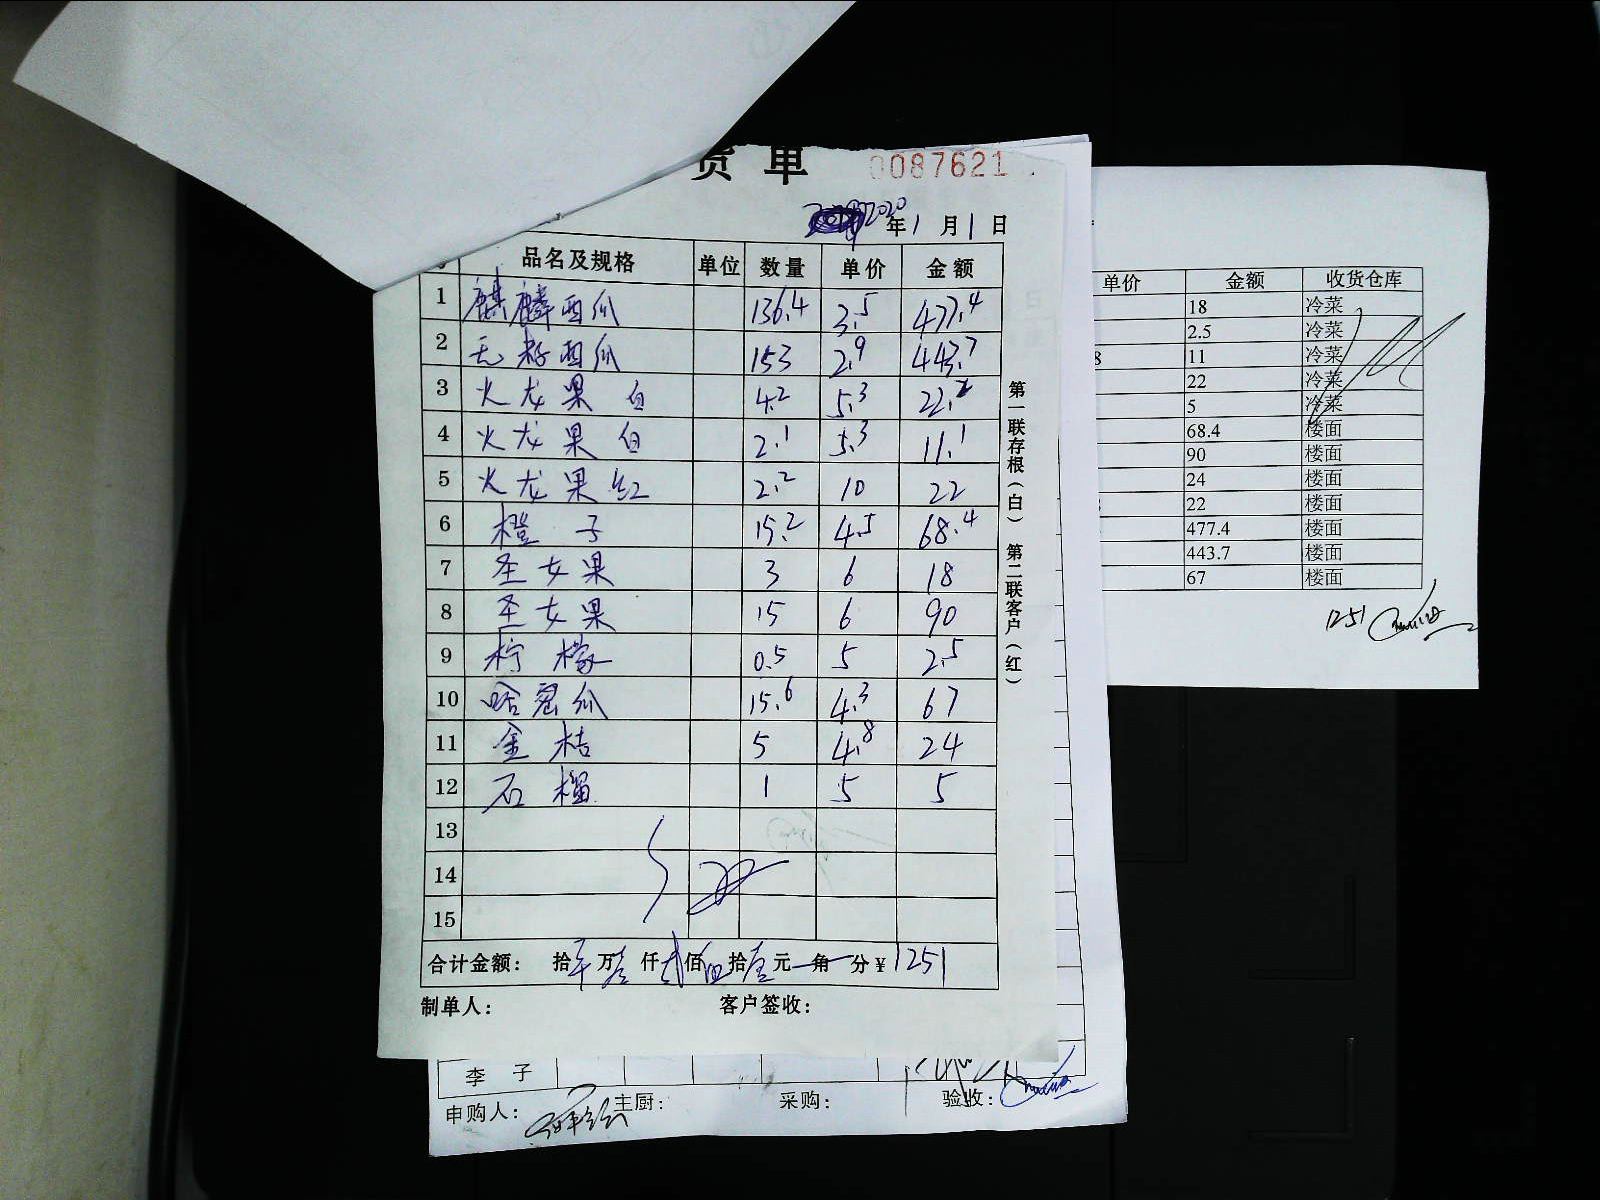 货单 0087621
2020年1月1日
品名及规格 单位 数量 单价 金额
1 麒麟西瓜 136.4 3.5 477.4
2 无籽西瓜 153 2.9 443.7
3 火龙果 白 4.2 5.3 22.2
4 火龙果 白 2.1 5.3 11.1
5 火龙果 红 2.2 10 22
6 橙子 15.2 4.5 68.4
7 圣女果 3 6 18
8 圣女果 15 6 90
9 柠檬 0.5 5 2.5
10 哈密瓜 15.6 4.3 67
11 金桔 5 4.8 24
12 石榴 1 5 5
13
14
15
合计金额: 拾 万 仟 佰 拾 元 角 分 ¥1251
制单人: 客户签收:
第一联存根(白) 第二联客户(红)
单价 金额 收货仓库
18 冷菜
2.5 冷菜
8 11 冷菜
22 冷菜
5 冷菜
68.4 楼面
90 楼面
24 楼面
22 楼面
477.4 楼面
443.7 楼面
67 楼面
1251
李子
申购人: 主厨: 采购: 验收: